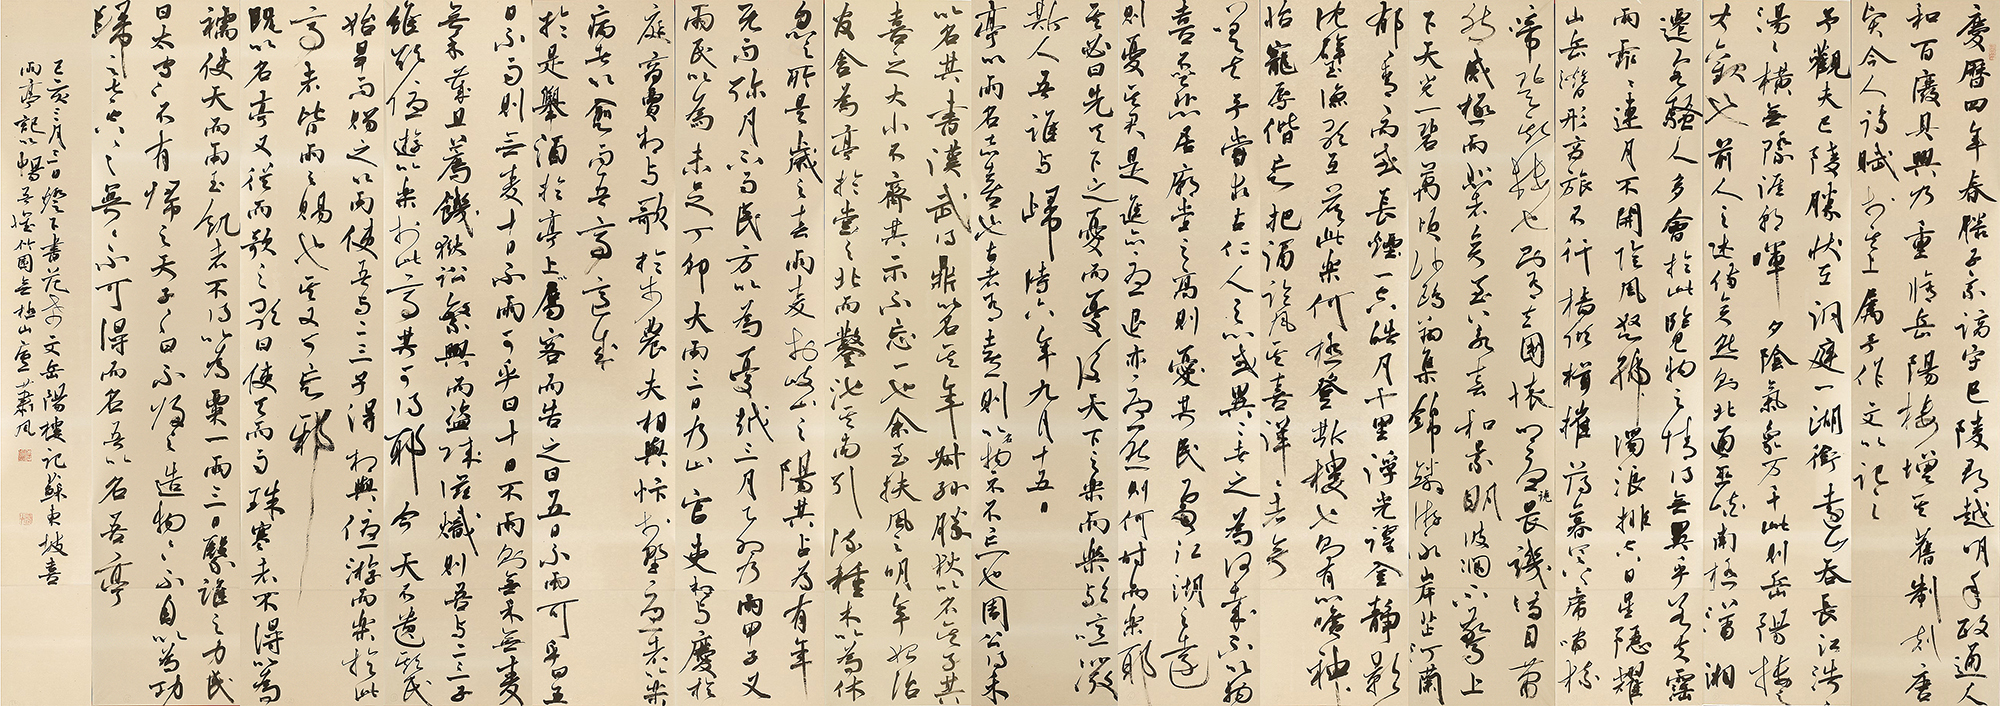 慶曆四年春滕子京謫守巴陵郡越明年政通人
和百廢具興乃重脩岳陽樓增其舊制刻唐
賢今人詩賦於其上屬予作文以記之
予觀夫巴陵勝狀在洞庭一湖銜遠山吞長江浩浩
湯湯橫無際涯朝暉夕陰氣象万千此則岳陽樓之
大觀也前人之述備矣然則北通巫峽南極瀟湘
遷客騷人多會於此覽物之情得無異乎若夫霪
雨霏霏連月不開陰風怒號濁浪排空日星隱耀
山岳潛形商旅不行檣傾楫摧薄暮冥冥虎嘯猿
啼登斯樓也則有去國懷鄉憂讒畏譏滿目蕭
然感極而悲者矣至若春和景明波瀾不驚上
下天光一碧萬頃沙鷗翔集錦鱗游泳岸芷汀蘭
郁郁青青而或長煙一空皓月千里浮光躍金靜影
沈璧漁歌互答此樂何極登斯樓也則有心曠神
怡寵辱偕忘把酒臨風其喜洋洋者矣
嗟夫予嘗求古仁人之心或異二者之為何哉不以物
喜不以己悲居廟堂之高則憂其民處江湖之遠
則憂其君是進亦憂退亦憂然則何時而樂耶
其必曰先天下之憂而憂後天下之樂而樂歟噫微
斯人吾誰与歸時六年九月十五日
亭以雨名志喜也古者有喜則以名物示不忘也周公得禾
以名其書漢武得鼎以名其年叔孫勝狄以名其子其
喜之大小不齊其示不忘一也余至扶風之明年始治
官舍為亭於堂之北而鑿池其南引流種木以為休
息之所是歲之春雨麥於岐山之陽其占為有年
既而彌月不雨民方以為憂越三月乙卯乃雨甲子又
雨民以為未足丁卯大雨三日乃止官吏相与慶於
庭商賈相与歌於市農夫相與忭於野憂者以樂
病者以愈而吾亭適成
於是舉酒於亭上屬客而告之曰五日不雨可乎曰五
日不雨則無麥十日不雨可乎曰十日不雨則無禾無麥
無禾歲且薦饑獄訟繁興而盜賊滋熾則吾与二三子
雖欲優遊以樂於此亭其可得耶今天不遺斯民
始旱而賜之以雨使吾与二三子得相與優游而樂於此
亭者皆雨之賜也其又可忘邪
既以名亭又從而歌之歌曰使天而雨珠寒者不得以為
襦使天而雨玉飢者不得以為粟一雨三日繄誰之力民
曰太守太守不有歸之天子天子曰不歸之造物造物不自以為功
歸之太空太空冥冥不可得而名吾以名吾亭
己亥三月三日燈下書范希文岳陽樓記蘇東坡喜
雨亭記以暢吾懷竹園無極山房蕭風